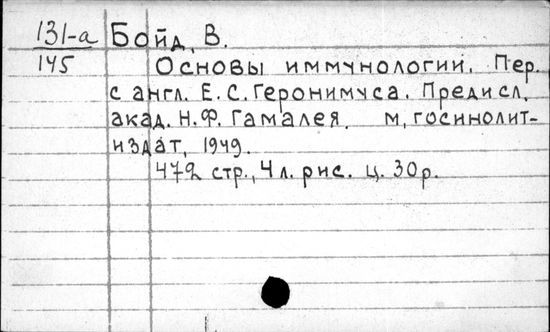 131-а Бойд, В.
145 Основы иммунологии. Пер.
с англ. Е.С. Геронимуса. Предисл.
акад. Н.Ф. Гамалея. М, госинолит-
издат, 1949.
472 стр., 4 л. рис. ц. 30 р.